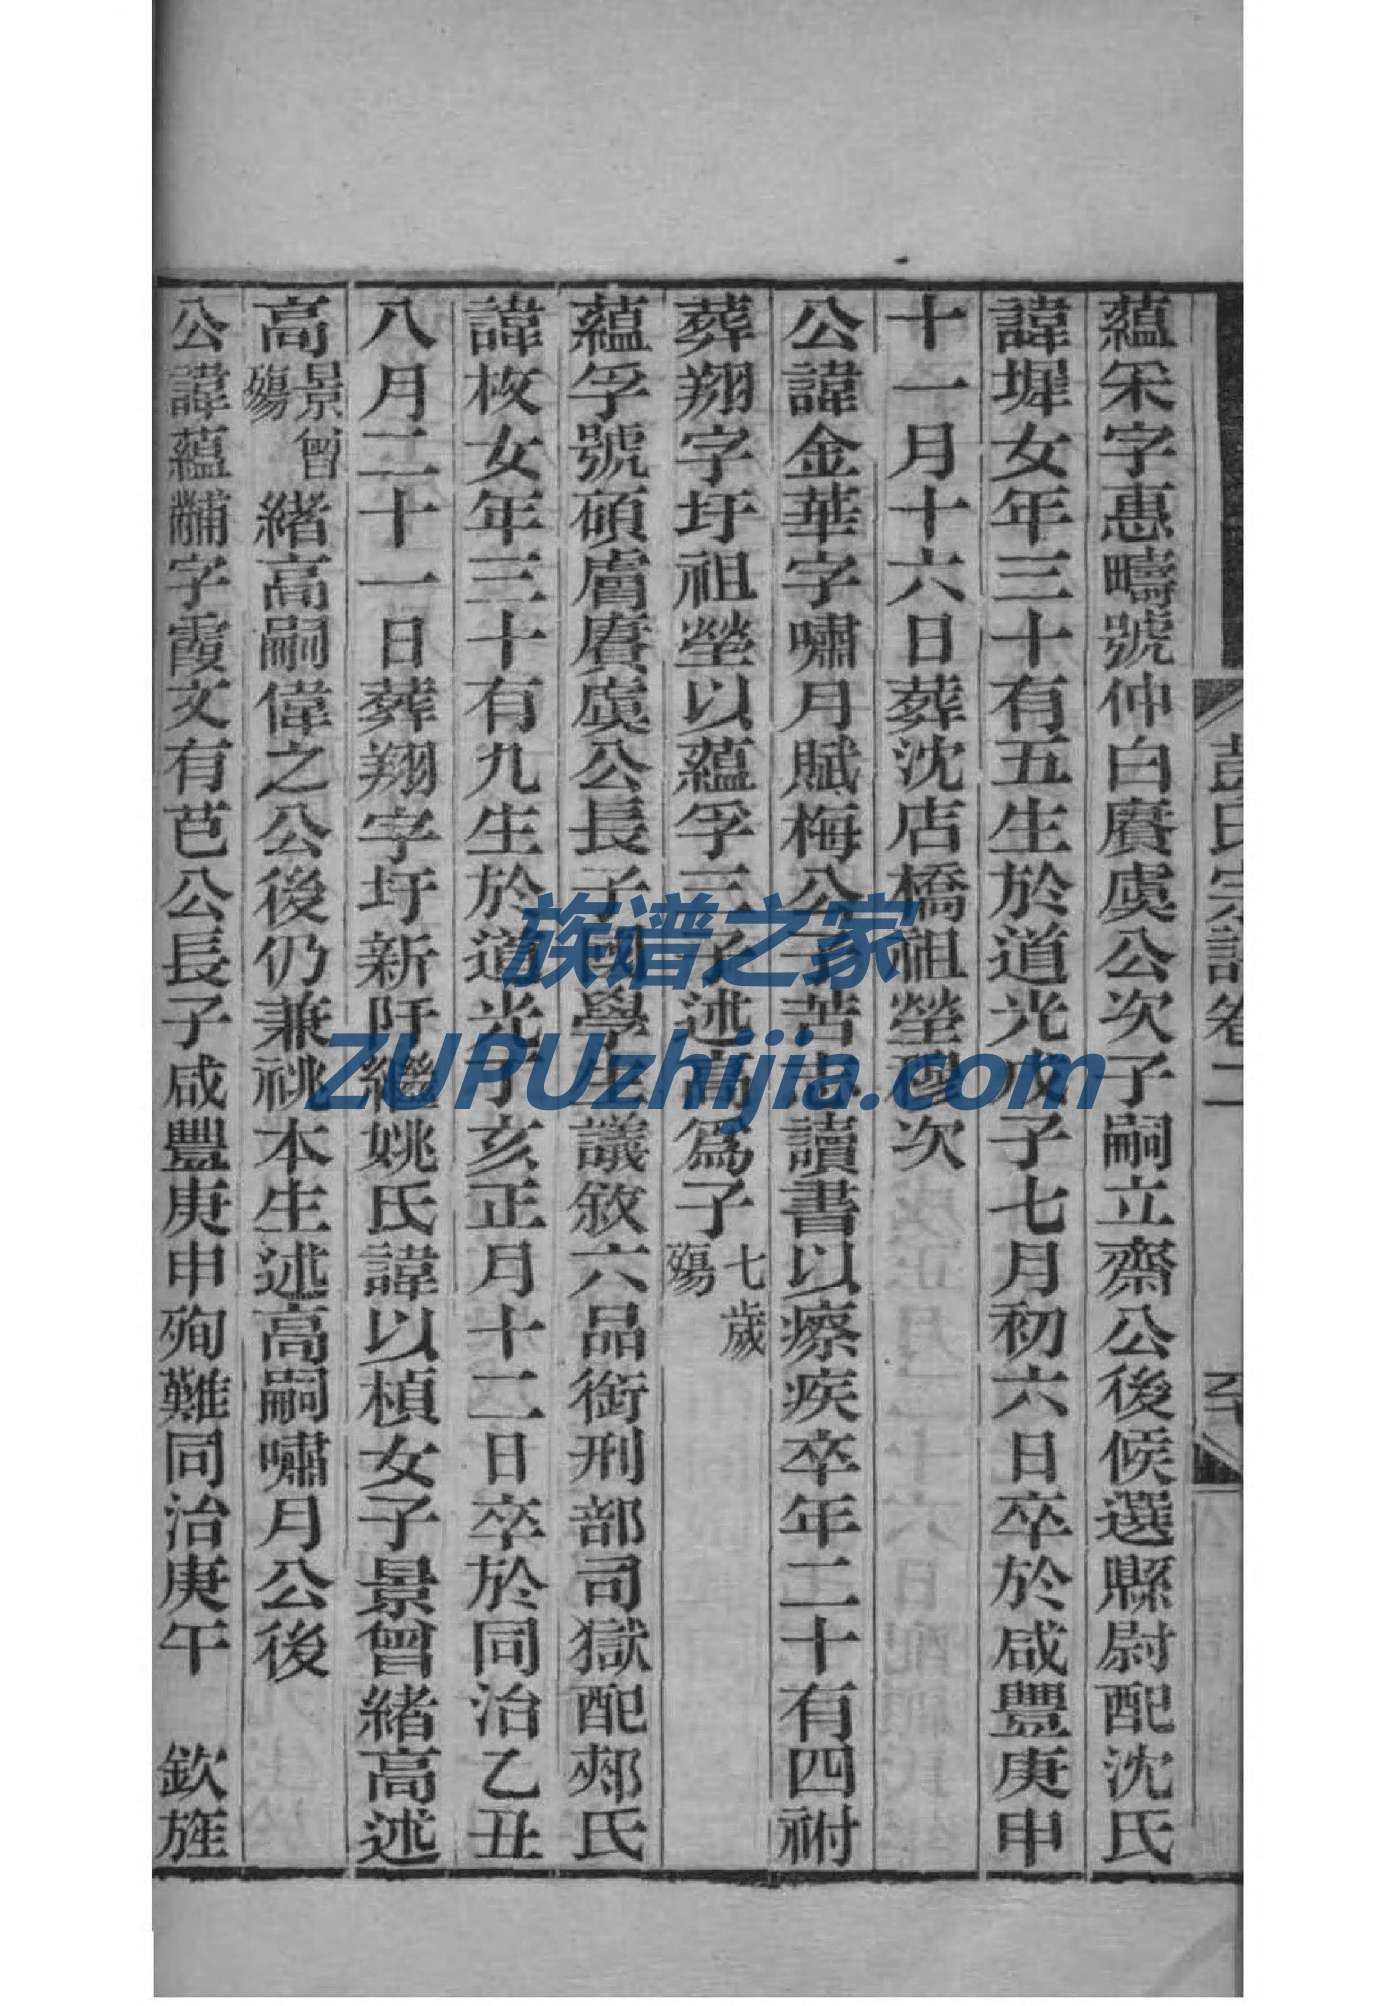 彭氏宗譜卷二
蘊宋字惪疇號仲白賡虞公次子嗣立齋公後候選縣尉配沈氏
諱墀女年三十有五生於道光戊子七月初六日卒於咸豐庚申
十一月十六日葬沈店橋祖塋穆次
公諱金華字嘯月賦梅公子苦志讀書以瘵疾卒年二十有四祔
葬翔字圩祖塋以蘊孚三子述高為子七歲殤
蘊孚號碩膚賡虞公長子國學生議敘六品銜刑部司獄配郟氏
諱枚女年三十有九生於道光丁亥正月十二日卒於同治乙丑
八月二十一日葬翔字圩新阡繼姚氏諱以楨女子景曾緒高述
高景曾殤緒高嗣偉之公後仍兼祧本生述高嗣嘯月公後
公諱蘊黼字霞文有芑公長子咸豐庚申殉難同治庚午 欽旌
族谱之家
ZUPUzhijia.com